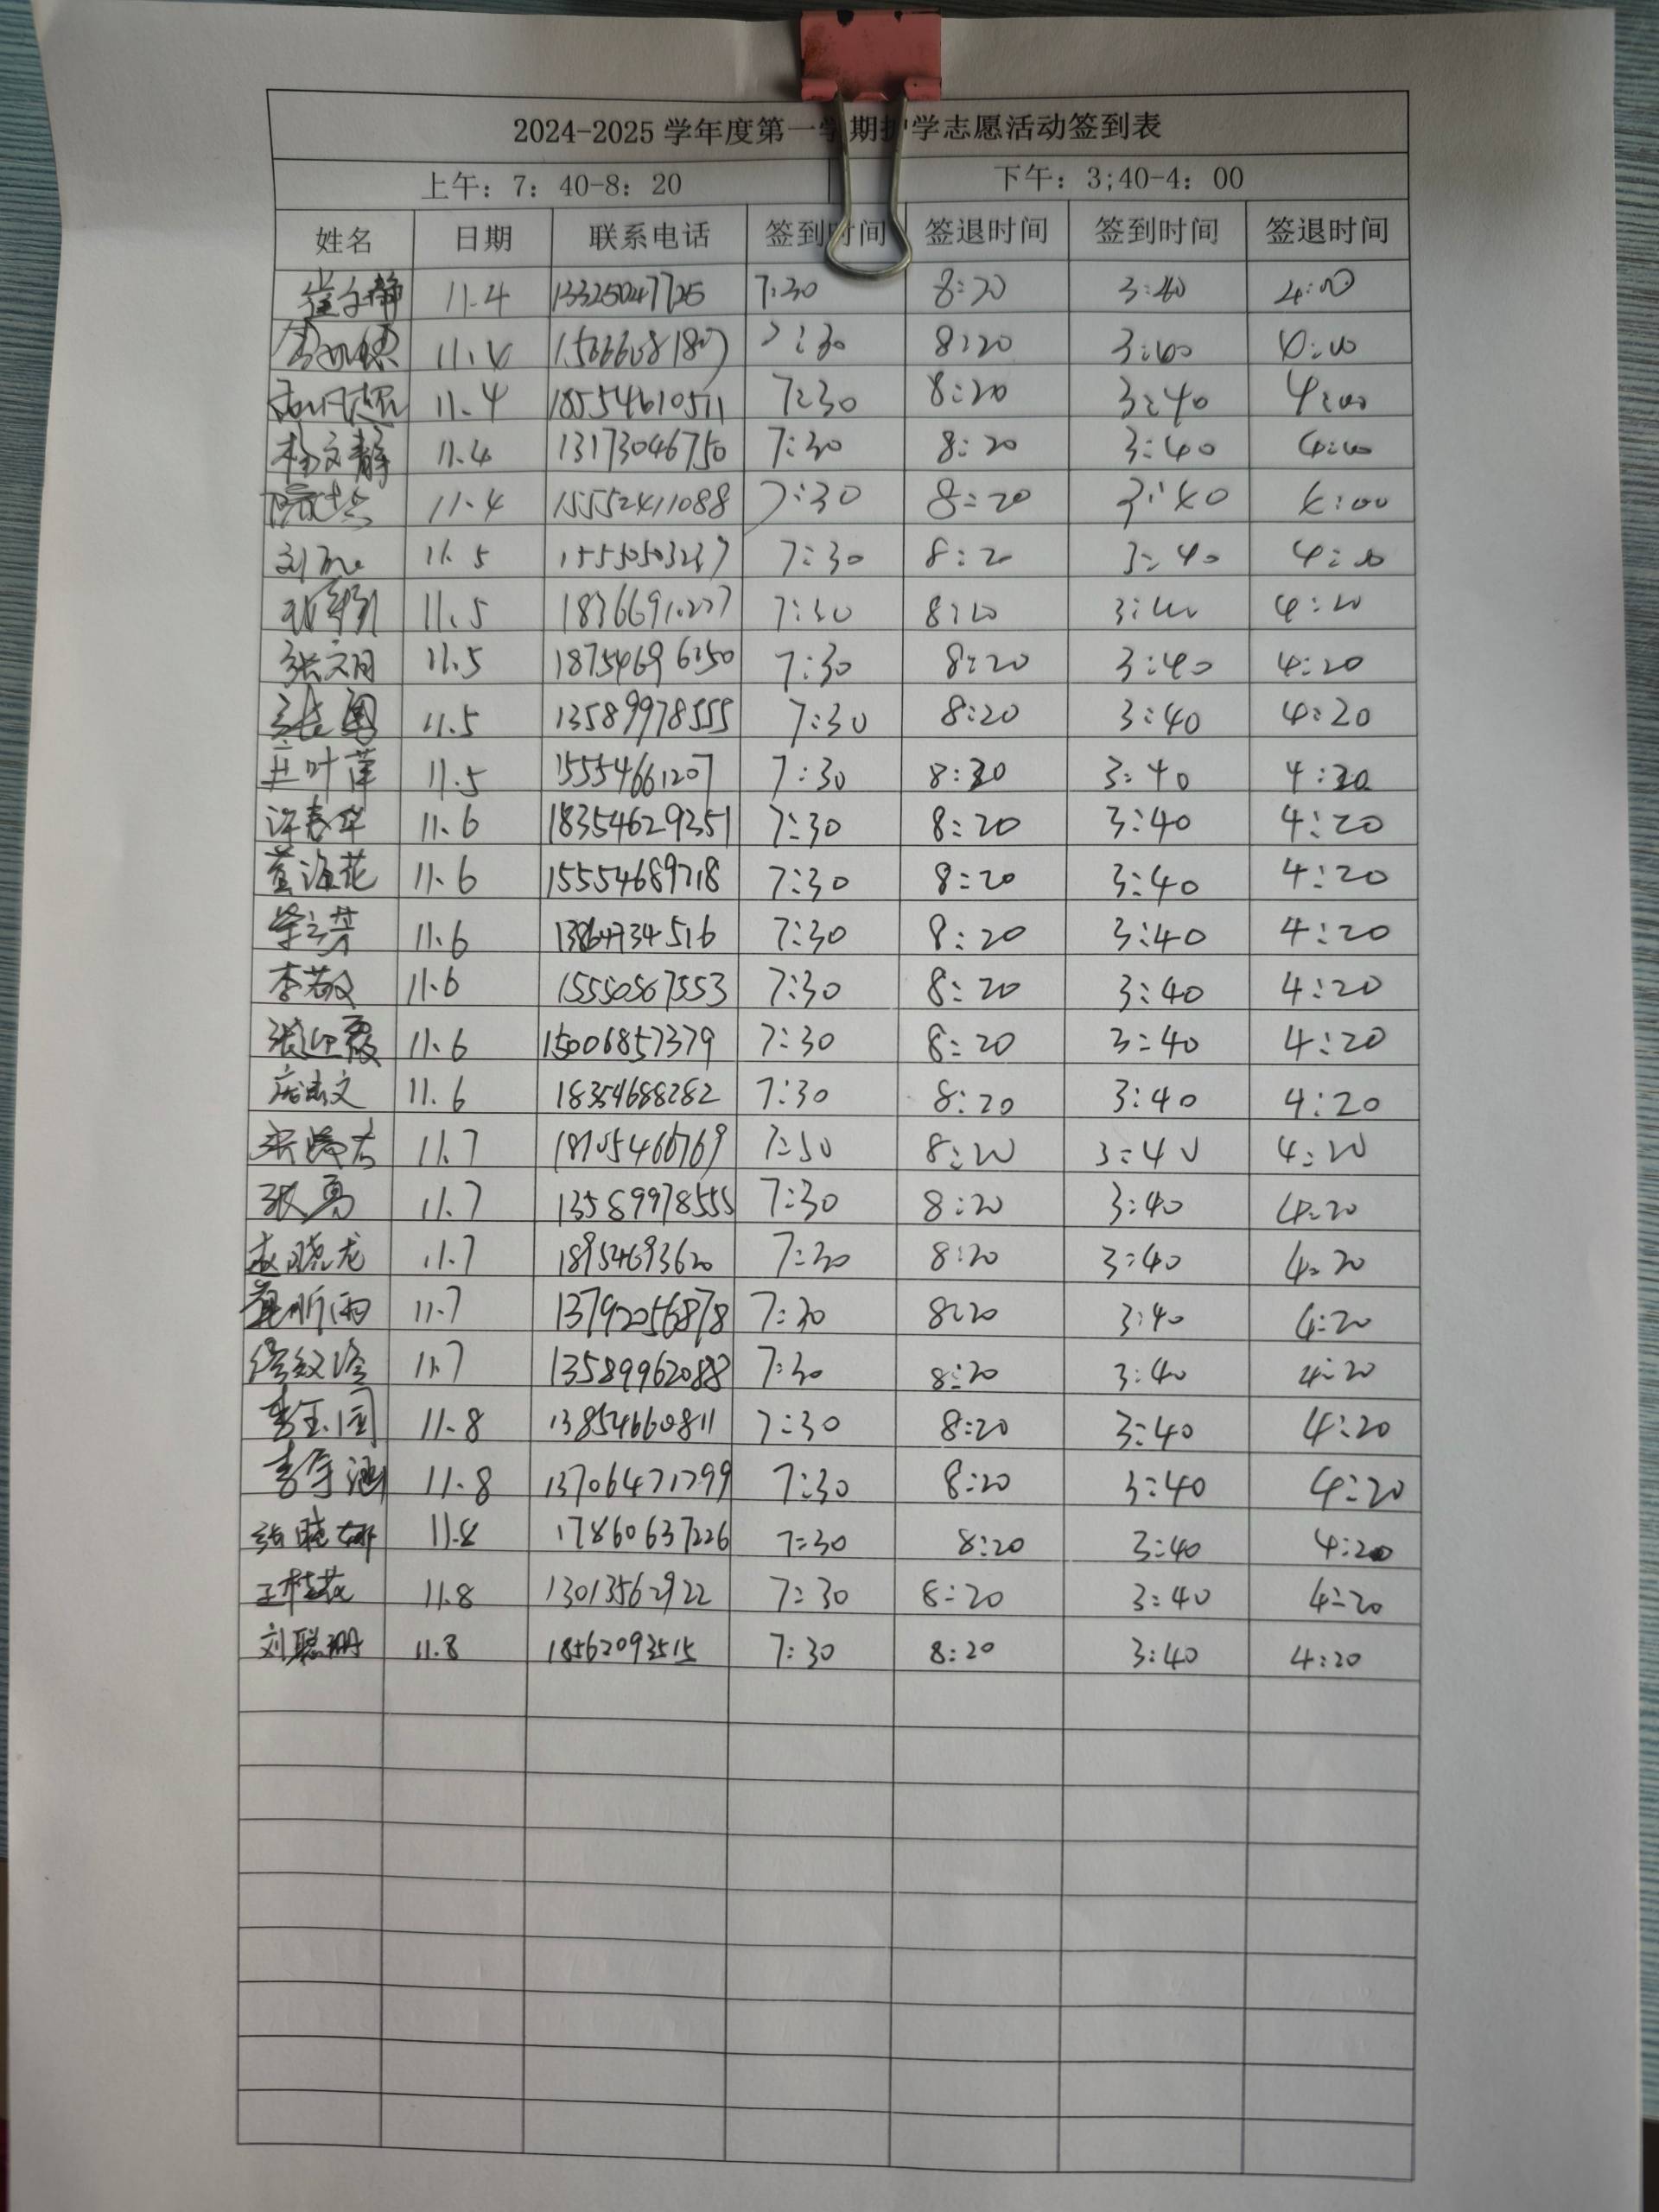 2024-2025 学年度第一学期护学志愿活动签到表
上午：7：40-8：20 下午：3;40-4：00
姓名 日期 联系电话 签到时间 签退时间 签到时间 签退时间
11.4 7:30 8:20 3:40 4:00
11.4 7:30 8:20 3:40 4:00
11.4 18554610511 7:30 8:20 3:40 4:00
杨文静 11.4 13173046750 7:30 8:20 3:40 4:00
11.4 15552411088 7:30 8:20 3:40 4:00
刘 11.5 15550503237 7:30 8:20 3:40 4:20
11.5 7:30 8:20 3:40 4:20
张文月 11.5 18754696350 7:30 8:20 3:40 4:20
张勇 11.5 13589978555 7:30 8:20 3:40 4:20
叶 11.5 15554661207 7:30 8:20 3:40 4:20
许春华 11.6 18354629351 7:30 8:20 3:40 4:20
黄海花 11.6 15554689718 7:30 8:20 3:40 4:20
11.6 13864734516 7:30 8:20 3:40 4:20
李敬文 11.6 15550567553 7:30 8:20 3:40 4:20
张迎霞 11.6 15006857379 7:30 8:20 3:40 4:20
文 11.6 18354688282 7:30 8:20 3:40 4:20
11.7 18705466769 7:30 8:20 3:40 4:20
张勇 11.7 13589978555 7:30 8:20 3:40 4:20
赵晓龙 11.7 18954693620 7:30 8:20 3:40 4:20
昕雨 11.7 13792056878 7:30 8:20 3:40 4:20
11.7 13589962088 7:30 8:20 3:40 4:20
李玉 11.8 13854660811 7:30 8:20 3:40 4:20
李 涵 11.8 13706471799 7:30 8:20 3:40 4:20
张晓娜 11.8 17860637226 7:30 8:20 3:40 4:20
王桂花 11.8 13013562922 7:30 8:20 3:40 4:20
刘聪珊 11.8 18562093515 7:30 8:20 3:40 4:20